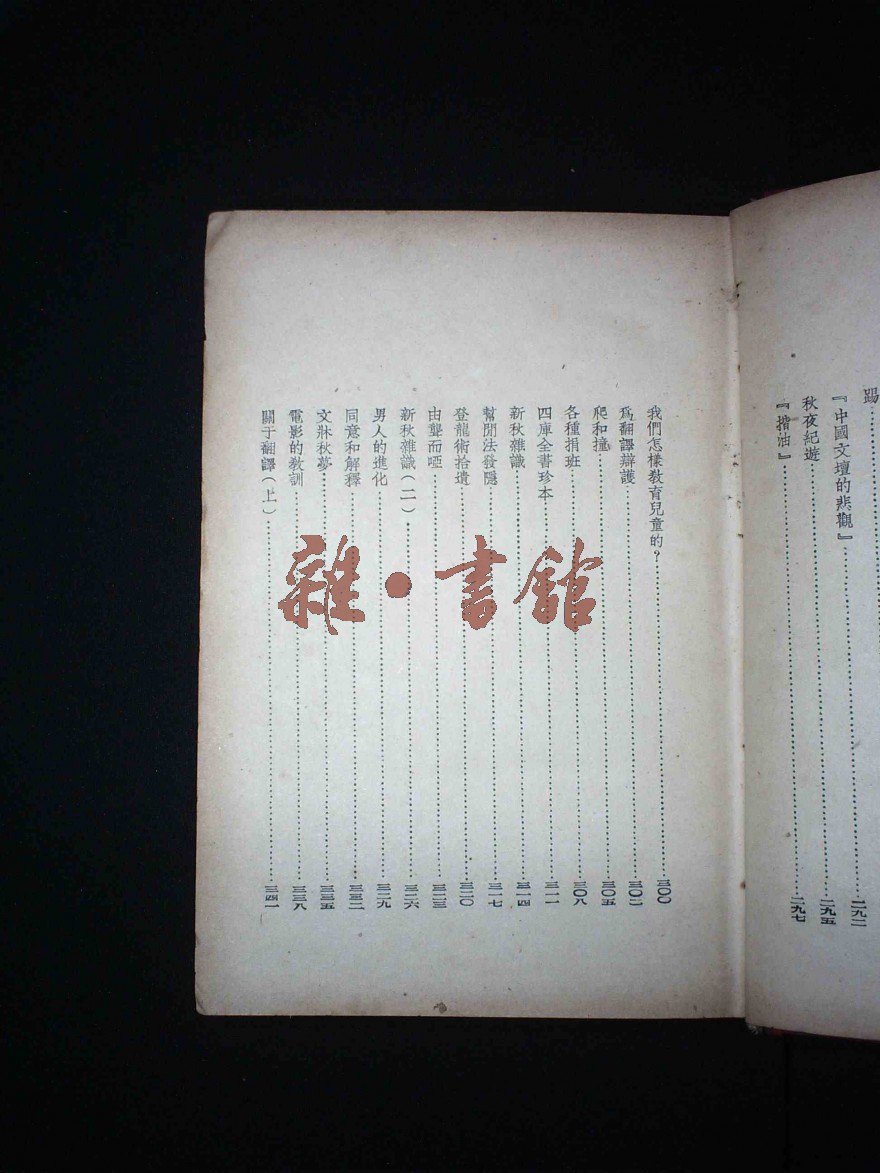 踢……二九二
『中國文壇的悲觀』……二九五
秋夜紀遊
『揩油』……二九七
我們怎樣教育兒童的？……三〇〇
爲翻譯辯護……三〇二
爬和撞……三〇五
各種捐班……三〇八
四庫全書珍本……三一一
新秋雜識……三一四
幫閒法發隱……三一七
登龍術拾遺……三二〇
由聾而啞……三二三
新秋雜識（二）……三二六
男人的進化……三二九
同意和解釋……三三二
文牀秋夢……三三五
電影的教訓……三三八
關于翻譯（上）……三四一
雜·書館